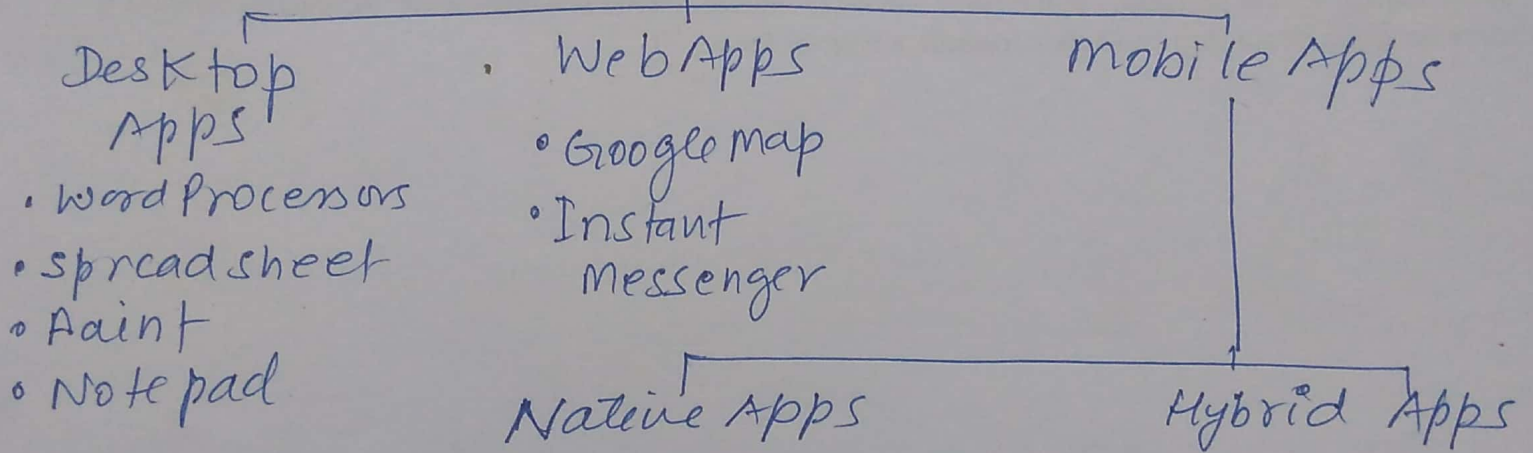 Desktop
Apps
• Word Processors
• Spreadsheet
• Paint
• Notepad
Web Apps
• Google map
• Instant
Messenger
Mobile Apps
Native Apps
Hybrid Apps